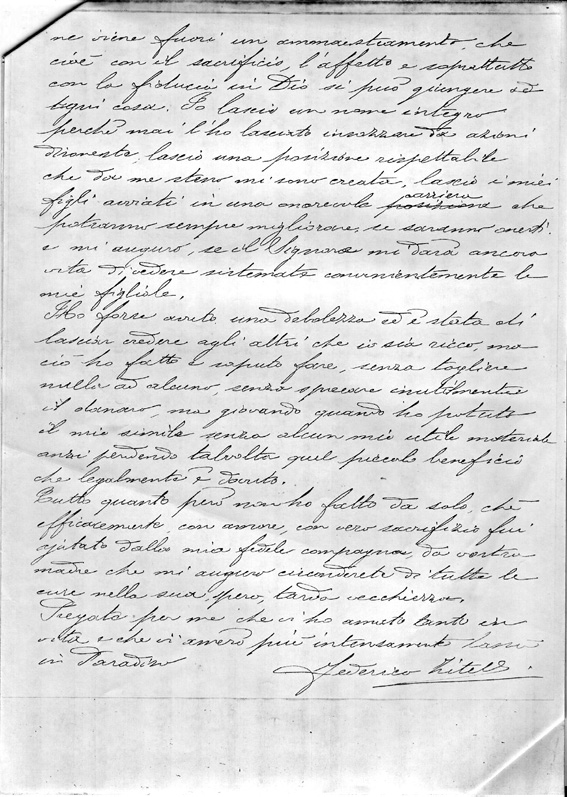 ne viene fuori un ammaestramento, che
cioè con il sacrificio, l'affetto e soprattutto
con la fiducia in Dio si può giungere ad
ogni cosa. Io lascio un nome integro
perchè mai l'ho lasciato insozzare da azioni
disoneste, lascio una posizione rispettabile
che da me stesso mi sono creata, lascio i miei
figli avviati in una onorevole posizione carriera che
potranno sempre migliorare, se saranno onesti.
e mi auguro, se il Signore mi darà ancora
vita di vedere sistemate convenientemente le
mie figliole.
Ho forse avuto una debolezza ed è stata di
lasciar credere agli altri che io sia ricco, ma
ciò ho fatto e saputo fare, senza togliere
nulla ad alcuno, senza sprecare inutilmente
il danaro, ma giovando quando ho potuto
il mio simile senza alcun mio utile materiale
anzi perdendo talvolta quel piccolo beneficio
che legalmente è dovuto.
Tutto quanto però non ho fatto da solo, chè
efficacemente, con amore, con vero sacrifizio fui
ajutato dalla mia fedele compagna, da vostra
madre che mi auguro circonderete di tutte le
cure nella sua, spero, tarda vecchiezza.
Pregate per me che vi ho amato tanto in
vita e che vi amerò più intensamente lassù
in Paradiso
Federico Zitelli.